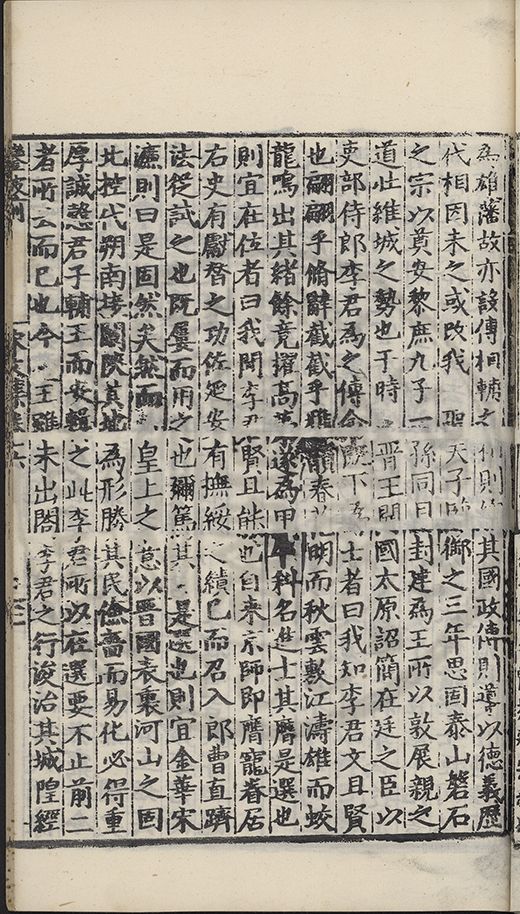 為雄藩故亦設傅相輔之則其國政傅則導以德義歷
代相因未之或改我 聖天子御之三年思固泰山磐石
之宗以奠安黎庶九子一孫同日封建為王所以敦展親之
道壯維城之勢也于時 晉王國太原詔簡在廷之臣以
吏部侍郎李君為之傅命既下士者曰我知李君文且賢
也翩翩乎脩辭截截乎雅讀春明而秋雲敷江濤雄而蛟
龍鳴出其緒餘竟擢高遂為甲科名進士其膺是選也
則宜在位者曰我聞李君賢且能也自來京師即膺寵眷居
右史有獻替之功佐延安有撫綏之績已而召入郎曹直躋
法從試之也既屢而用之也彌篤其是選也則宜金華宋
濂則曰是固然矣然而 皇上之意以晉國表裏河山之固
北控代朔南接關陝其地為形勝其民儉嗇而易化必得重
厚誠愨君子輔王而安輯之此李君所以在選要不止前二
者所云而已也今 王雖未出閤李君之行浚治其城隍經